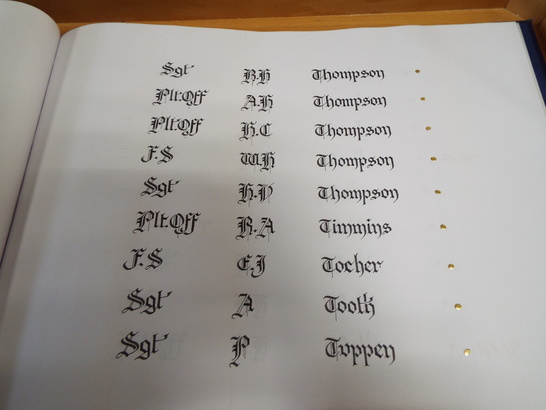 Sgt B.H Thompson
Plt.Off A.H Thompson
Plt.Off H.C Thompson
F.S W.H Thompson
Sgt H.V Thompson
Plt.Off R.A Timmins
F.S E.J Tocher
Sgt A Tooth
Sgt P Toppen